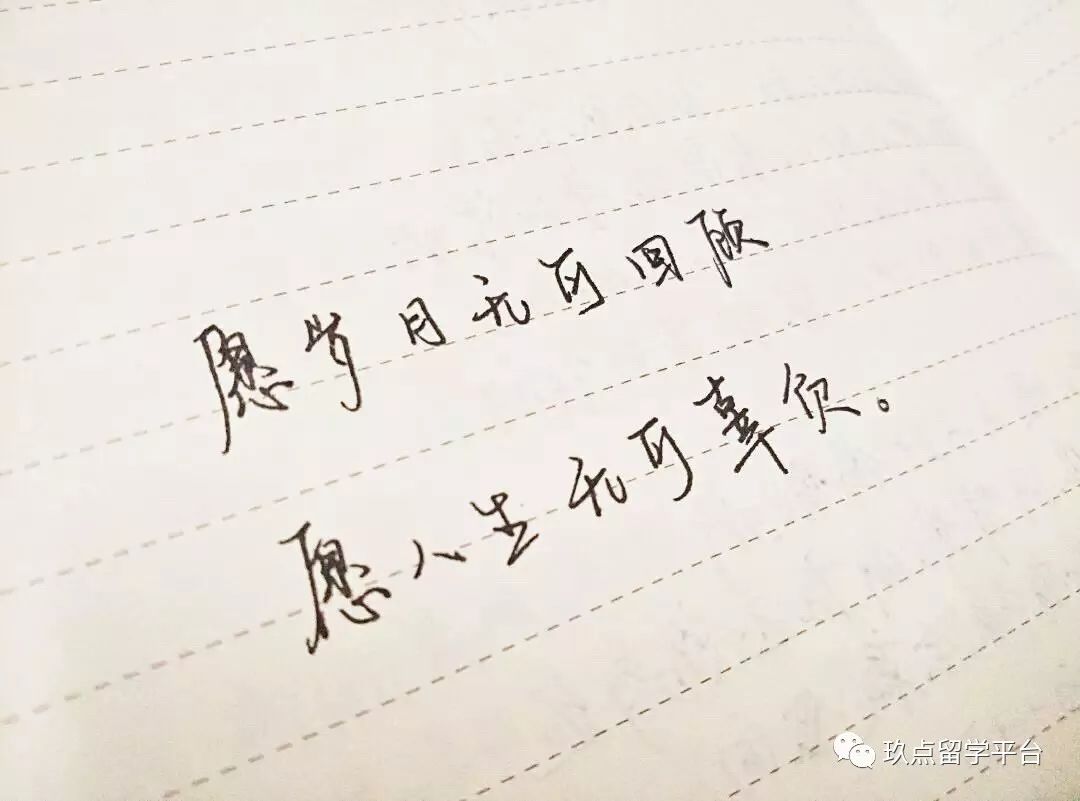 愿岁月无可回顾
愿人生无可辜负。
玖点留学平台